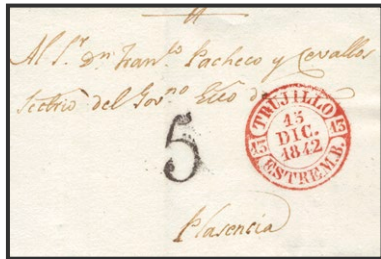 Al S.r D.n Fran.co Pacheco y Cevallos
Sectrio del Gov.no Ecco de
5
TRUJILLO
13 15 DIC. 1842 13
ESTREM.B.
Plasencia